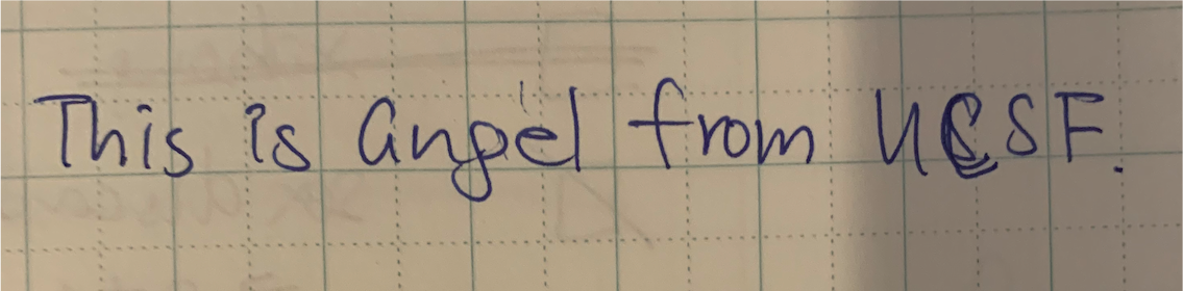 This is Angel from UCSF.